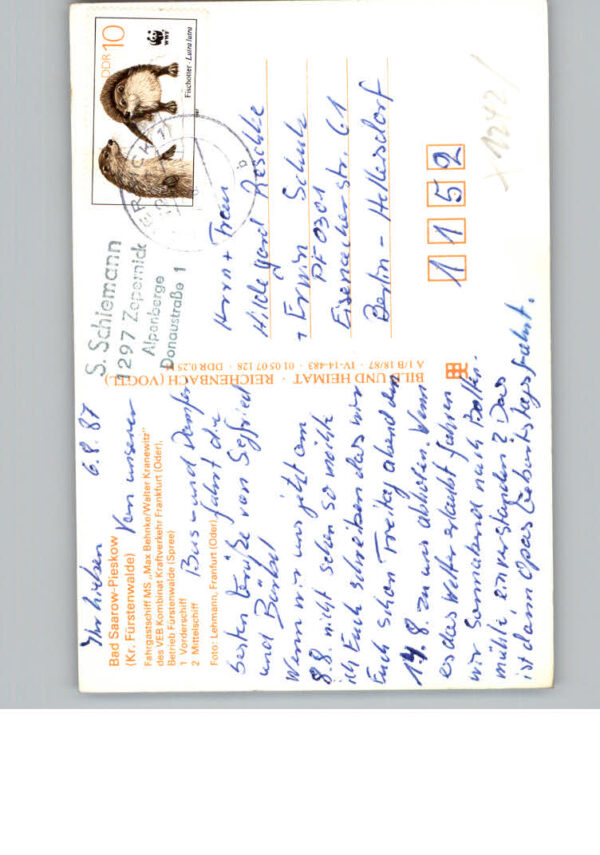 6.8.87
Ihr Lieben
Bad Saarow-Pieskow
(Kr. Fürstenwalde)
Fahrgastschiff MS „Max Behnke/Walter Kranewitz"
des VEB Kombinat Kraftverkehr Frankfurt (Oder),
Betrieb Fürstenwalde (Spree)
1 Vorderschiff
2 Mittelschiff
Foto: Lehmann, Franfurt (Oder)
Von unserer
Bus- und Dampfer
fahrt die
besten Grüße von Segfried
und Bärbel
Wenn wir uns jetzt am
8.8. nicht sehen so möchte
ich Euch schreiben das wir
Euch schon Freitag abend am
14.8. zu uns abholen. Wenn
es das Wetter erlaubt fahren
wir Sonnabend nach
mühle, einverstanden? Das
ist dann Opas Geburtstagsfahrt.
BILD UND HEIMAT · REICHENBACH (VOGTL)
A 1/B 18/87 · IV-14-483 · 01 05 07 128 · DDR 0,25
S. Schiemann
1297 Zepernick
Alpenberge
Donaustraße 1
DDR 10
WWF
Fischotter · Lutra lutra
Herrn + Frau
Hildegard Reschke
Erwin Schulz
PF 0301
Eisenacher str. 61
Berlin - Hellersdorf
1152